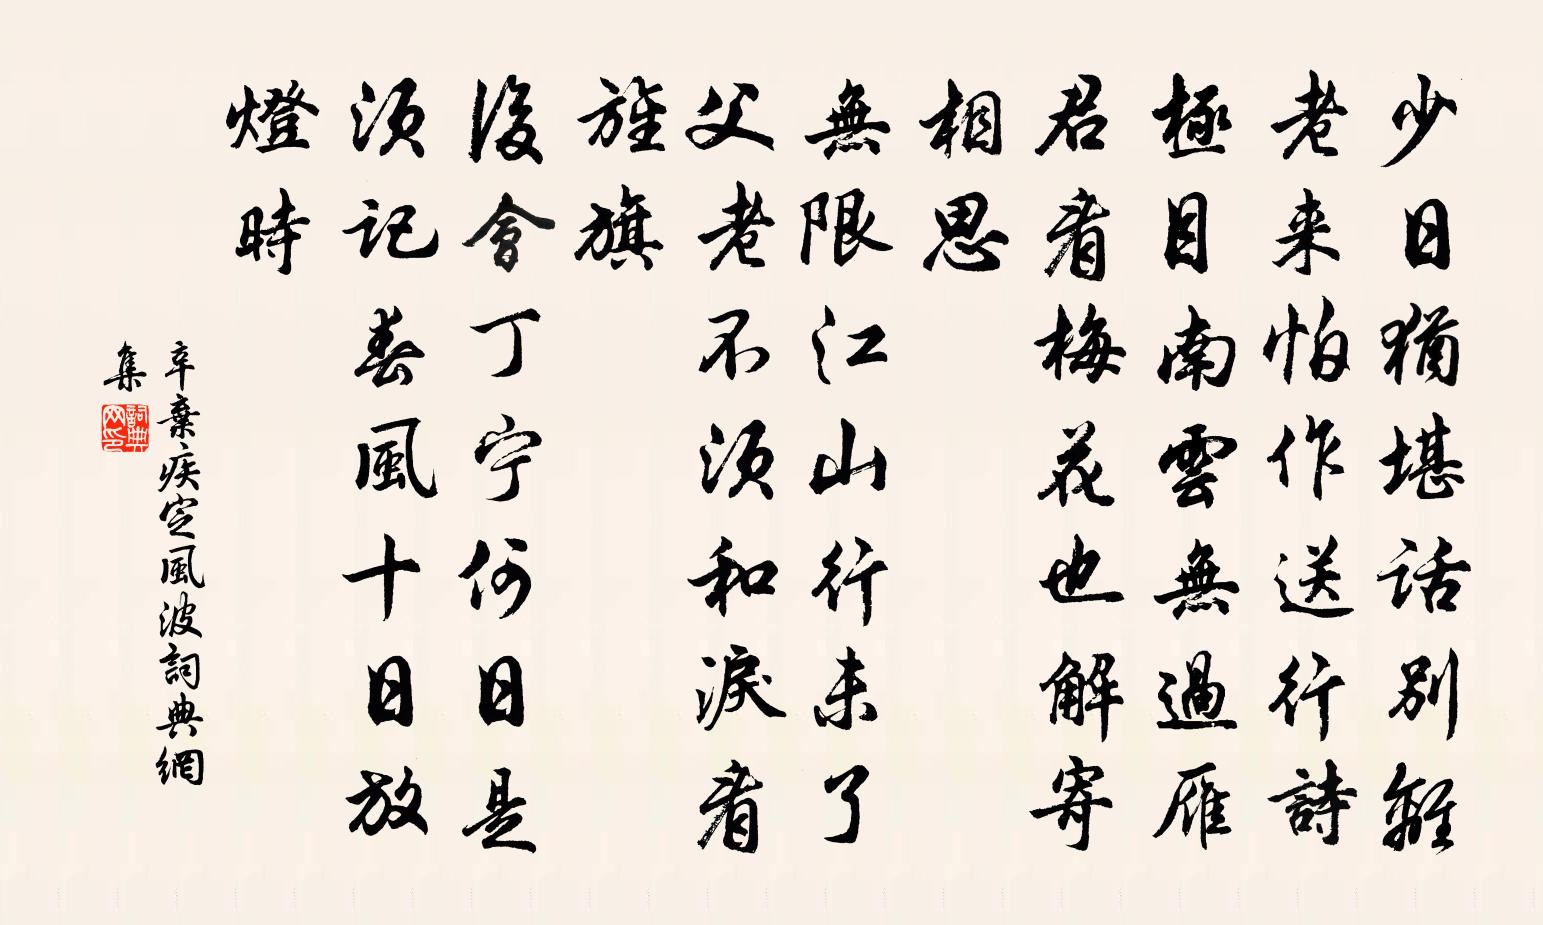 少日猶堪話別離
老来怕作送行詩
極目南雲無過雁
君看梅花也解寄
相思
無限江山行未了
父老不須和淚看
旌旗
後會丁宁何日是
須記春風十日放
燈時
辛棄疾定風波詞典網
集
詞典網印